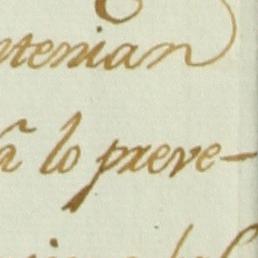 ntenian
ã lo preve-